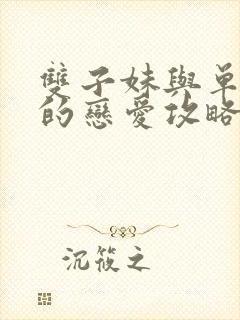 雙子妹與單
的戀愛攻略
沉筱之